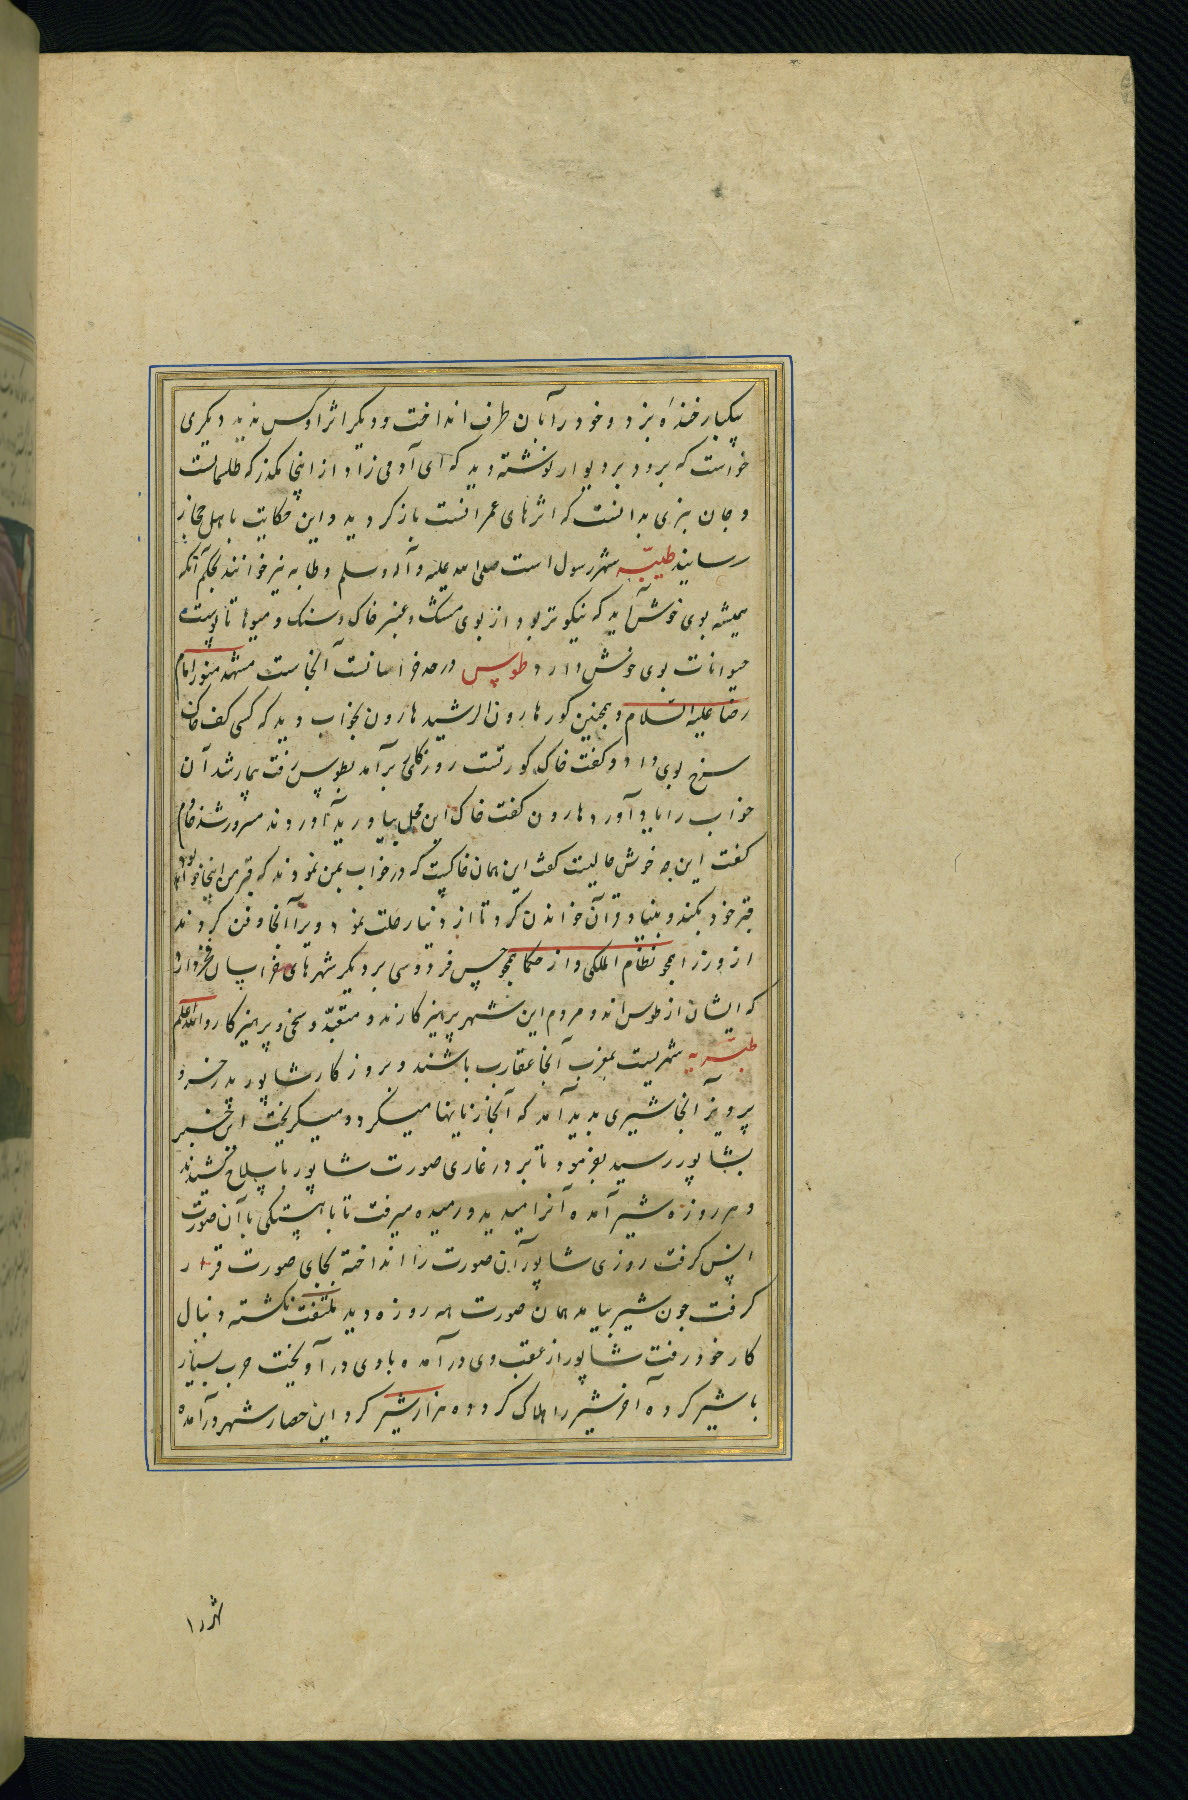 یکبار خنداه بزد و خود را بان طرف انداخت و دیگر اثر او کس ندید دیگری
خواست که برود بر دیوار نوشته دید که ای آدمی زاد از اینجا مگذر که طلماتست
و جان بنری بدانست که اثرهای عمرانست باز کردید و این حکایت باهل حجاز
رسانید طیبّه شهر رسول است صلی الله علیه و آله و سلم و طابه نیز خوانند بحکم آنکه
همیشه بوی خوش آید که نیکوتر بود از بوی مشک و عنبر خاک و سنک و میوها تا پوست
حیوانات بوی خوش دارد طوس در حد خراسانست آنجاست مشهد منور امام
رضا علیه السّلام و همچنین کور هارون الرشید هارون بخواب دید که کسی کف خاک
سرخ بوی داد و کفت خاک کور تست روزکاری برآمد بطوس رفت بیمار شد آن
خواب را یاد آورد هارون کفت خاک این محل بیاورید آوردند مسرور شد خادم
کفت این چه خوش حالیست کفت این همان خاکیست که در خواب بمن نمودند که قبر من اینجا خواهد بود
قبر خود بکند و بنیاد قرآن خواندن کرد تا از دنیا رحلت نمود ویرا آنجا دفن کردند
از وزرا همچو نظام الملکی و از حکما همچو حس فردوسی بر دیکر شهرهای خراسان فخر دارند
که ایشان از طوس اند و مردم این شهر پرهیزکارند و متعبّد و سخی و پرهیزکار والله اعلم
طبّریه شهریست بمغرب آنجا عقارب باشند و بروزکار شاپور پدر خسرو
پرویز آنجا شیری بدید آمد که آنجا زیانها میکرد و میکریخت این خبر
بشاپور رسید بفرمود تا بر در غاری صورت شاپور با سلاح کشیدند
و هر روزه شیر آمده آنرا میدید و رمیده میرفت تا باهستکی با آن صورت
انس کرفت روزی شاپور آن صورت را انداخته بجای صورت قرار
کرفت جون شیر بیامد همان صورت همه روزه دید ملتفت نکشته دنبال
کار خود رفت شاپور از عقب وی درآمده با وی درآویخت حرب بسیار
با شیر کرده آخر شیر را هلاک کرد و ده هزار شیر کرد این حصار شهر درآمده